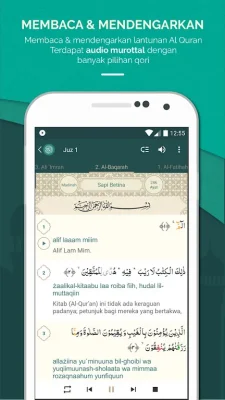 MEMBACA & MENDENGARKAN
Membaca & mendengarkan lantunan Al Quran
Terdapat audio murottal dengan
banyak pilihan qori
12:55
Juz 1
3. Ali 'Imran
2. Al-Baqarah
1. Al-Fatihah
Sapi Betina
بِسْمِ اللّٰهِ الرَّحْمٰنِ الرَّحِيْمِ
1
الۤمّۤ ﴿١﴾
alif laaam miim
Alif Lam Mim.
2
ذٰلِكَ الْكِتٰبُ لَا رَيْبَ ۛ فِيْهِ ۛ هُدًى لِّلْمُتَّقِيْنَ ﴿٢﴾
zaalikal-kitaabu laa roiba fiih, hudal lil-
muttaqiin
Kitab (Al-Qur'an) ini tidak ada keraguan
padanya; petunjuk bagi mereka yang bertakwa,
3
الَّذِيْنَ يُؤْمِنُوْنَ بِالْغَيْبِ وَيُقِيْمُوْنَ الصَّلٰوةَ وَمِمَّا
رَزَقْنٰهُمْ يُنْفِقُوْنَ ﴿٣﴾
allaziina yu`minuuna bil-ghoibi wa
yuqiimuunash-sholaata wa mimmaa
rozaqnaahum yunfiquun